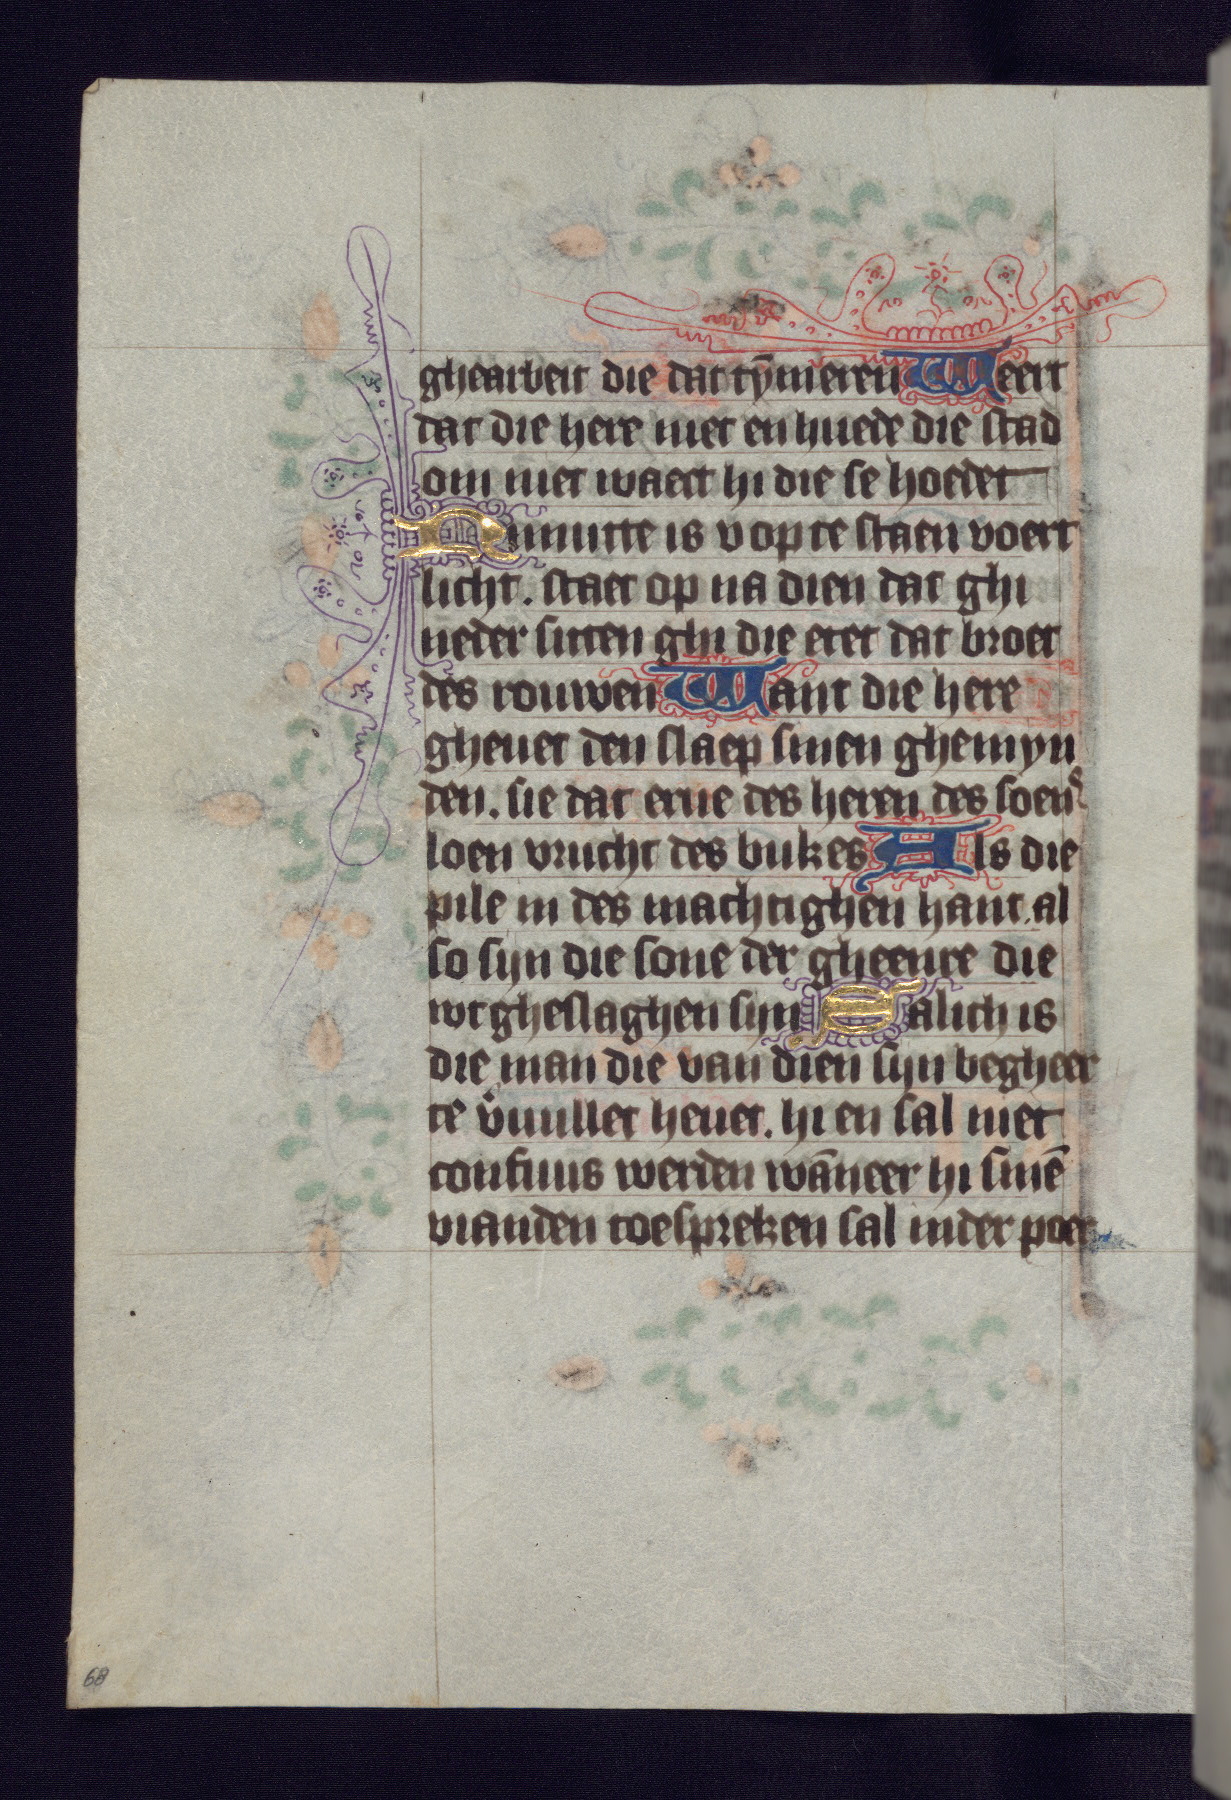 ghearbeit die dat tȳmeren Weert
dat die here niet en huede die stad
om niet waect hi die se hoedet
Onnutte is v op te staen voert
licht. staet op na dien dat ghi
neder sitten ghi die etet dat broet
des rouwen Want die here
gheuet den slaep sinen ghemyn
den. sie dat erue des heren des soens
loen vrucht des bukes Als die
pile in des machtighen hant. al
so sijn die sone der gheenre die
wtgheslaghen sijn Salich is
die man die van dien sijn begheer
te v̄uullet heuet. hi en sal niet
confuus werden wāneer hi sinē
vianden toespreken sal inder poer
68